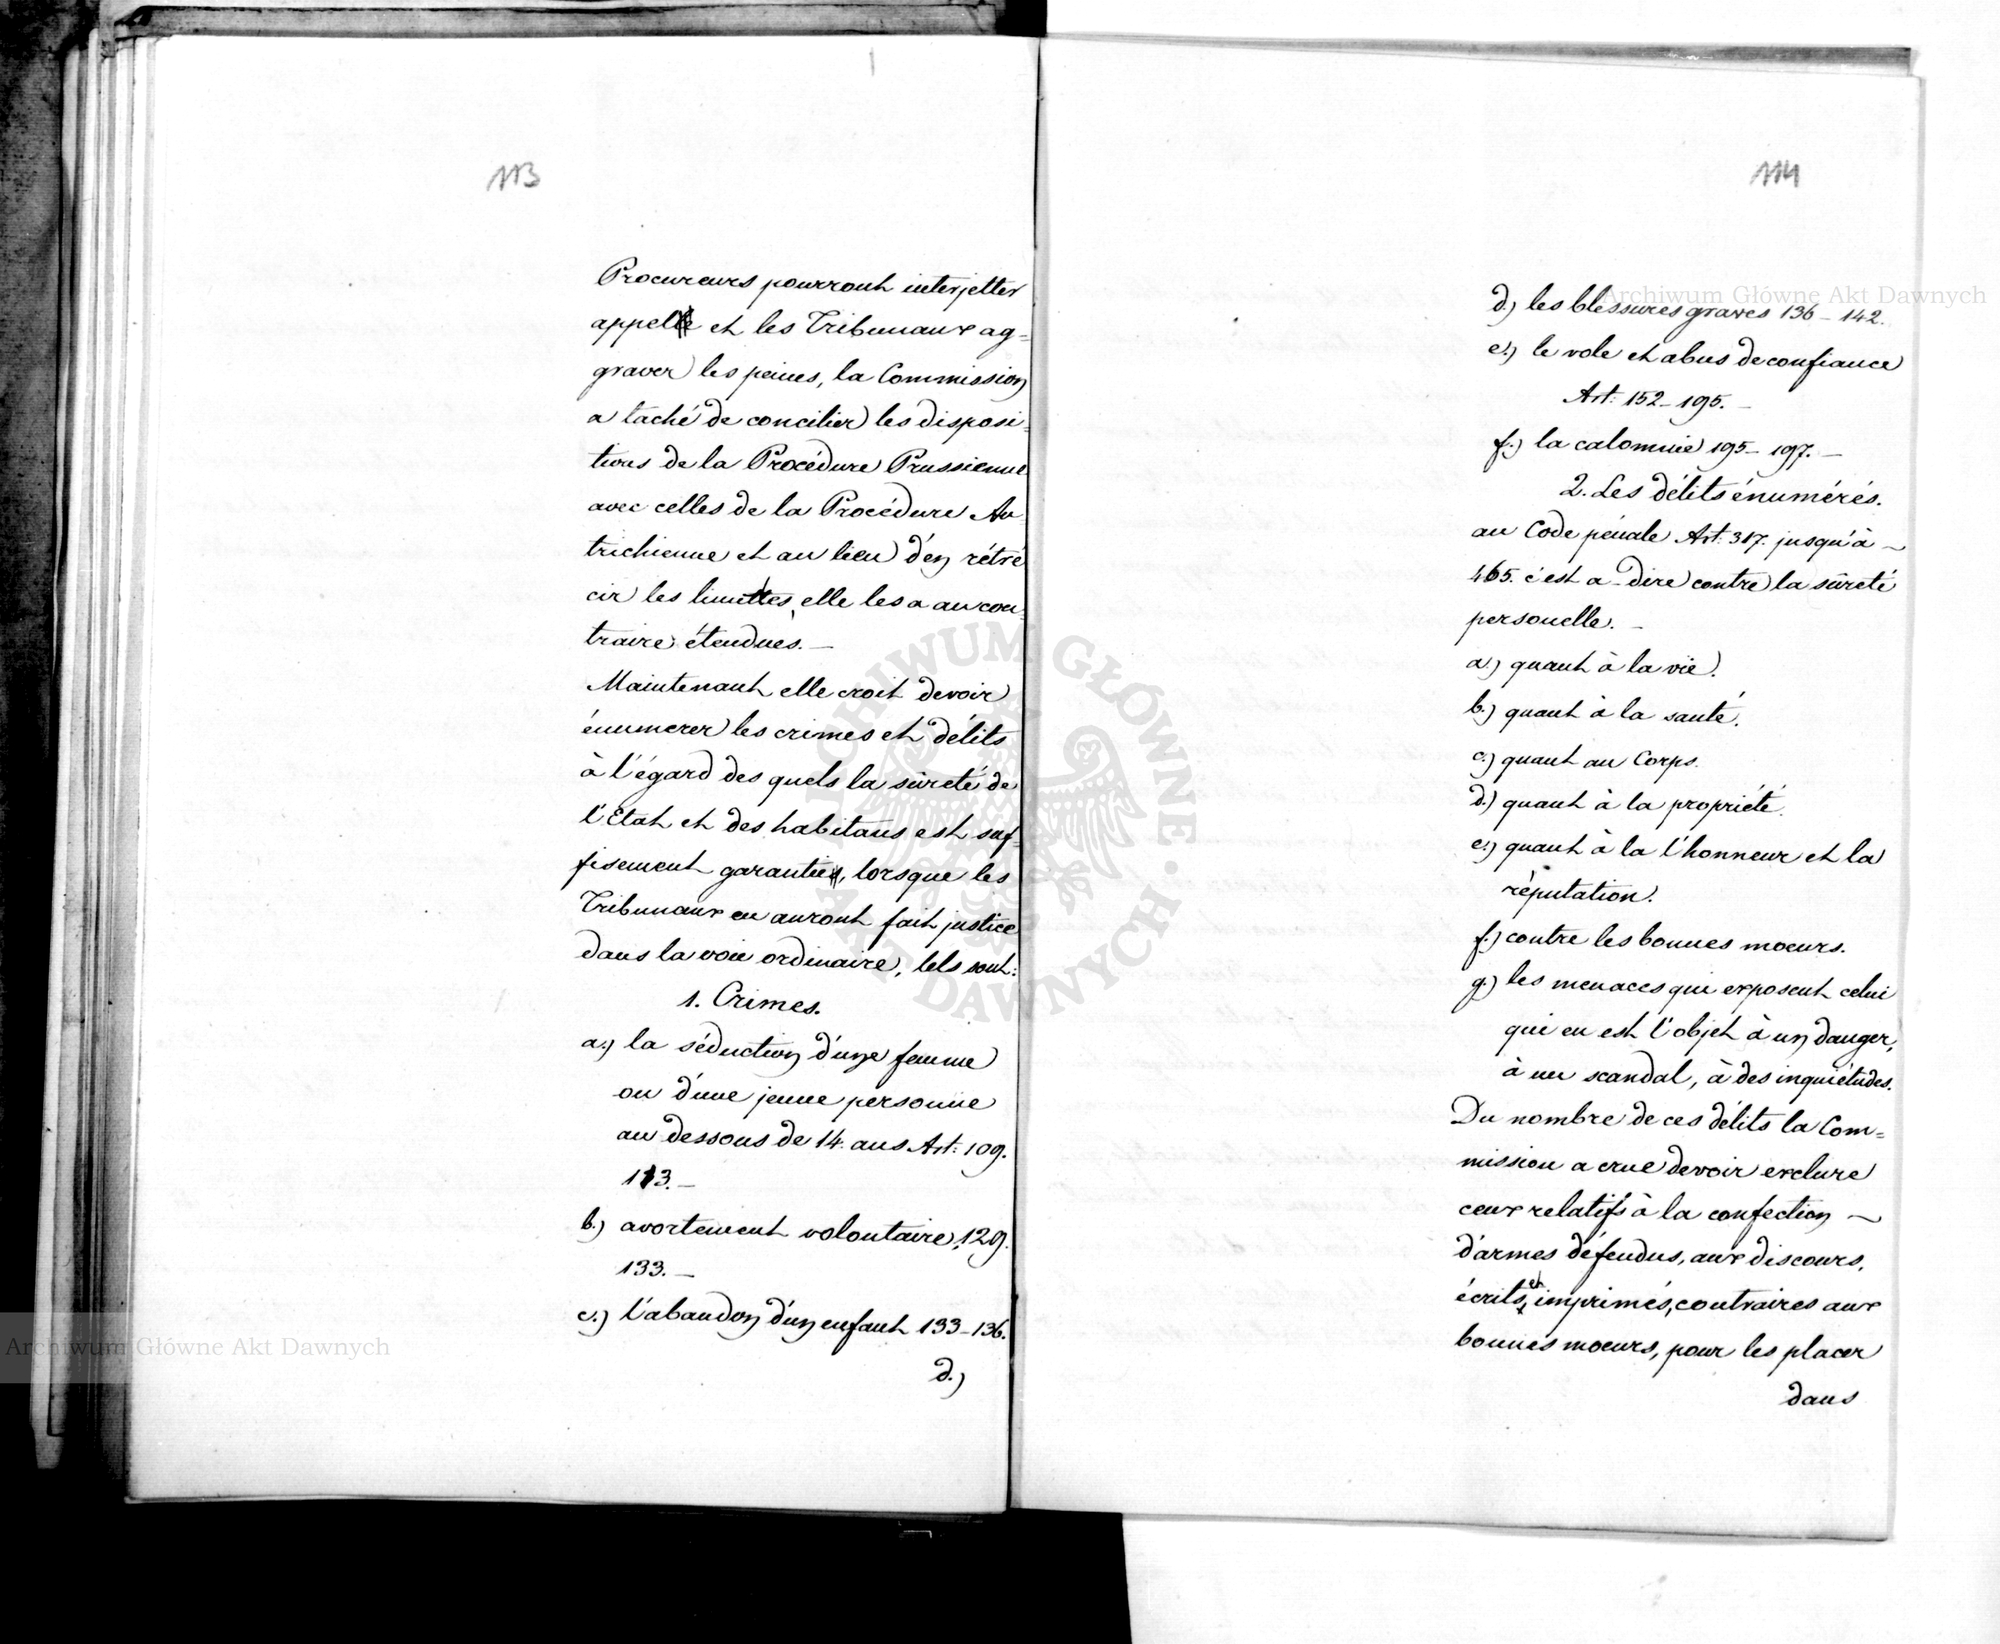 113
Procureurs pourront interjetter
appel et les Tribunaux ag=
graver les peines, la Commission
a taché de concilier les disposi=
tions de la Procédure Prussienne
avec celles de la Procédure Au
trichienne et au lieu d'en rétré
cir les limittes, elle les a au con
traire étendues. —
Maintenant elle croit devoir
énumerer les crimes et délits
à l'égard des quels la sûreté de
l'Etat et des habitans est suf=
fisement garantie, lorsque les
Tribunaux en auront fait justice
dans la voie ordinaire, tels sont:
1. Crimes.
a.) la séduction d'une femme
ou d'une jeune personne
au dessous de 14. ans Art: 109.
113. —
b.) avortement volontaire, 129.
133. —
c.) l'abandon d'un enfant 133–136.
d.)
114
d.) les blessures graves 136 – 142.
e.) le vole et abus de confiance
Art: 152 – 195. —
f.) la calomnie 195 – 197. —
2. Les délits énumérés.
au Code pénale Art: 317. jusqu'à —
465. c'est a-dire contre la sûreté
personelle. —
a.) quant à la vie.
b.) quant à la santé.
c.) quant au Corps.
d.) quant à la propriété.
e.) quant à la l'honneur et la
réputation.
f.) contre les bonnes moeurs.
g.) les menaces qui exposent celui
qui en est l'objet à un danger,
à un scandal, à des inquiétudes.
Du nombre de ces délits la Com=
mission a crue devoir exclure
ceux relatifs à la confection —
d'armes défendus, aux discours,
écrits, et imprimés, contraires aux
bonnes moeurs, pour les placer
dans
Archiwum Główne Akt Dawnych
Archiwum Główne Akt Dawnych
ARCHIWUM GŁÓWNE · AKT DAWNYCH ·